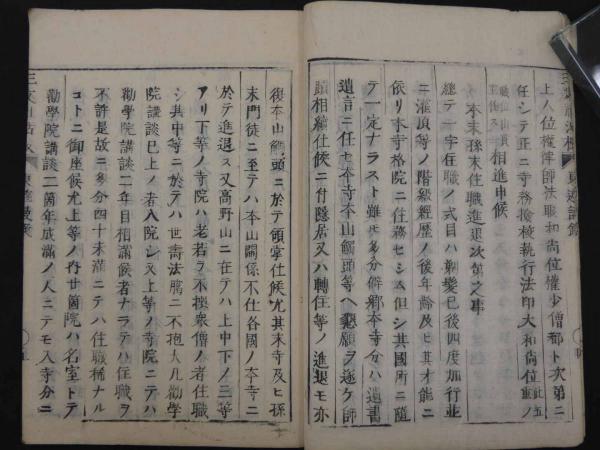 上人位權律師法職和尚位權少僧都ト次第ニ
任シテ正ニ寺務檢校執行法印大和尚位
相進申候
本末孫末住職進退次第之事
總テ一宇在職ノ式目ハ剃髪已後四度加行並
ニ灌頂等ノ階級經歴ノ後年齢及ヒ其才能ニ
依リ本寺格院ニ住務セシム但シ其國所ニ隨
テ一定ナラスト雖モ多分俗郷本寺分ハ遺書
遺言ニ任セ本寺本山觸頭等ヘ懇願ヲ遂ケ師
蹟相續仕候ニ付隱居又ハ轉住等ノ進退モ亦
復本山觸頭ニ於テ領掌仕候尤其末寺及ヒ孫
末門徒ニ至テハ本山關係不仕各國ノ本寺ニ
於テ進退ス又高野山ニ在テハ上中下ノ三等
アリ下等ノ寺院ハ老若ヲ不擇衆僧ノ者住職
シ其中等ニ於テハ世壽法臈ニ不抱大凡勸學
院講談已上ノ者入院シ又上等ノ寺院ニテハ
勸學院講談二年目相滿候者ナラテハ住職ヲ
不許是故ニ多分四十未滿ニテハ住職稀ナル
コトニ御座候尤上等ノ内廿箇院ハ名室トテ
勸學院講談二箇年成滿ノ人ニテモ入寺分ニ